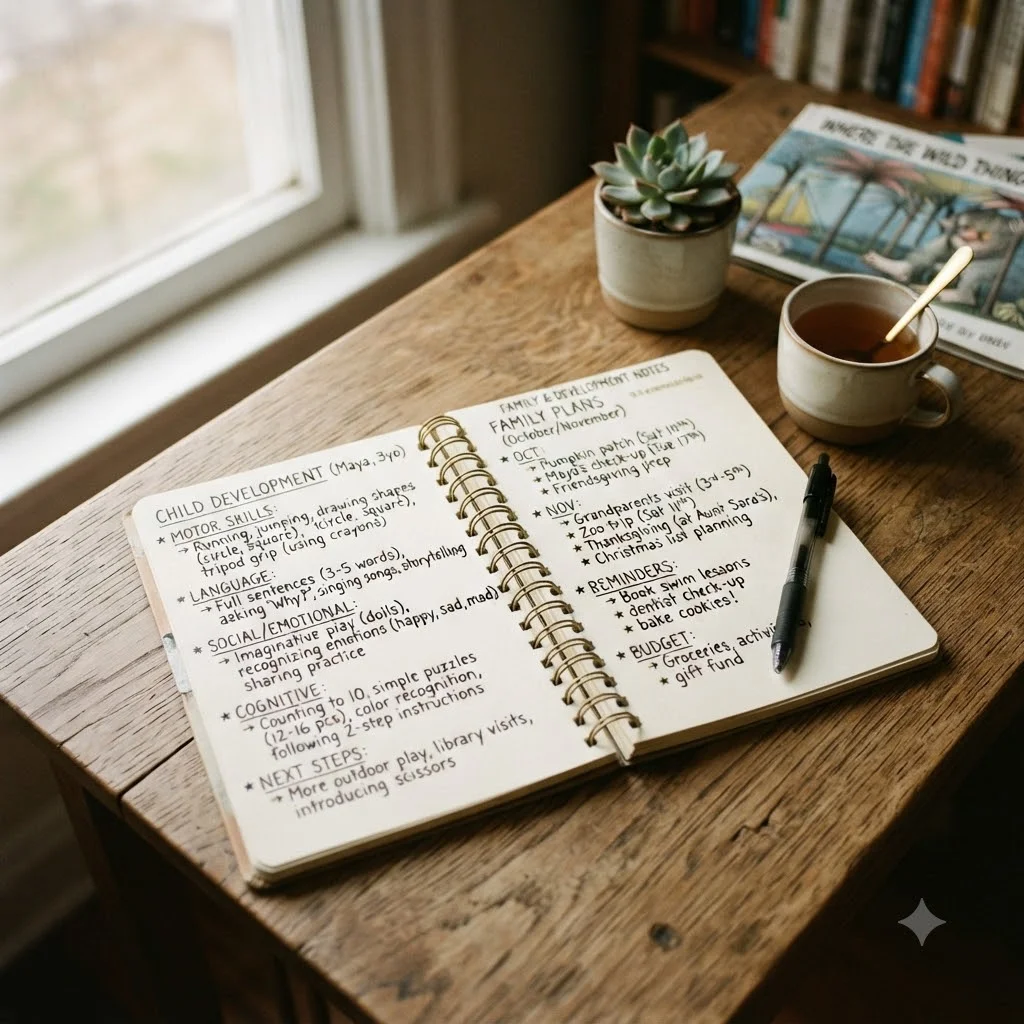 CHILD DEVELOPMENT (Maya, 3yo)
* MOTOR SKILLS:
→ Running, jumping, drawing shapes
(circle, square), (circle, square),
tripod grip (using crayons)
* LANGUAGE:
→ Full sentences (3-5 words),
asking "Why?", singing songs, storytelling
* SOCIAL/EMOTIONAL:
→ Imaginative play (dolls),
recognizing emotions (happy, sad, mad)
sharing practice
* COGNITIVE:
→ Counting to 10, simple puzzles
(12-16 pcs), color recognition,
following 2-step instructions
* NEXT STEPS:
→ More outdoor play, library visits,
introducing scissors
FAMILY & DEVELOPMENT NOTES
FAMILY PLANS
(October/November)
* OCT:
→ Pumpkin patch (Sat 10th)
* Maya's check-up (Tue 17th)
* Friendsgiving prep
* NOV:
→ Grandparents visit (3rd-5th)
* Zoo trip (Sat 11th)
* Thanksgiving (at Aunt Sara's),
* Christmas list planning
* REMINDERS:
→ Book swim lessons
* dentist check-up
* bake cookies!
* BUDGET:
→ Groceries,
* gift fund
WHERE THE WILD THING